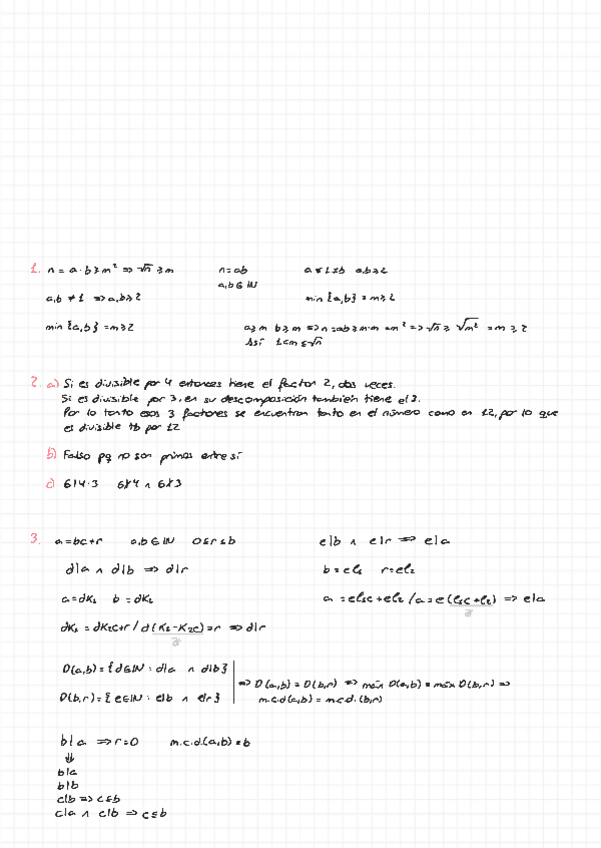 1. n = a · b ≥ m² => √n ≥ m    n = ab    a ≠ 1 ≠ b  a,b ≥ 2
a,b ∈ ℕ
a,b ≠ 1 => a,b ≥ 2    min {a,b} = m ≥ 2
min {a,b} = m ≥ 2    a ≥ m  b ≥ m => n = ab ≥ m·m = m² => √n ≥ √m² = m ≥ 2
Así 1 < m ≤ √n
2. a) Si es divisible por 4 entonces tiene el factor 2, dos veces.
Si es divisible por 3, en su descomposición también tiene el 3.
Por lo tanto esos 3 factores se encuentran tanto en el número como en 12, por lo que
es divisible tb por 12
b) Falso pq no son primos entre sí
c) 6|4·3    6∤4 ∧ 6∤3
3. a = bc+r    a,b ∈ ℕ    0 ≤ r ≤ b    e|b ∧ e|r => e|a
d|a ∧ d|b => d|r    b = el₁    r = el₂
a = dK₁    b = dK₂    a = el₁c + el₂ / a = e(l₁c + l₂) => e|a
ℤ
dK₁ = dK₂c + r / d(K₁ - K₂c) = r => d|r
ℤ
D(a,b) = {d ∈ ℕ : d|a ∧ d|b}
=> D(a,b) = D(b,r) => máx D(a,b) = máx D(b,r) =>
D(b,r) = {e ∈ ℕ : e|b ∧ e|r}    m.c.d(a,b) = m.c.d.(b,r)
b|a => r = 0    m.c.d.(a,b) = b
⇓
b|a
b|b
c|b => c ≤ b
c|a ∧ c|b => c ≤ b